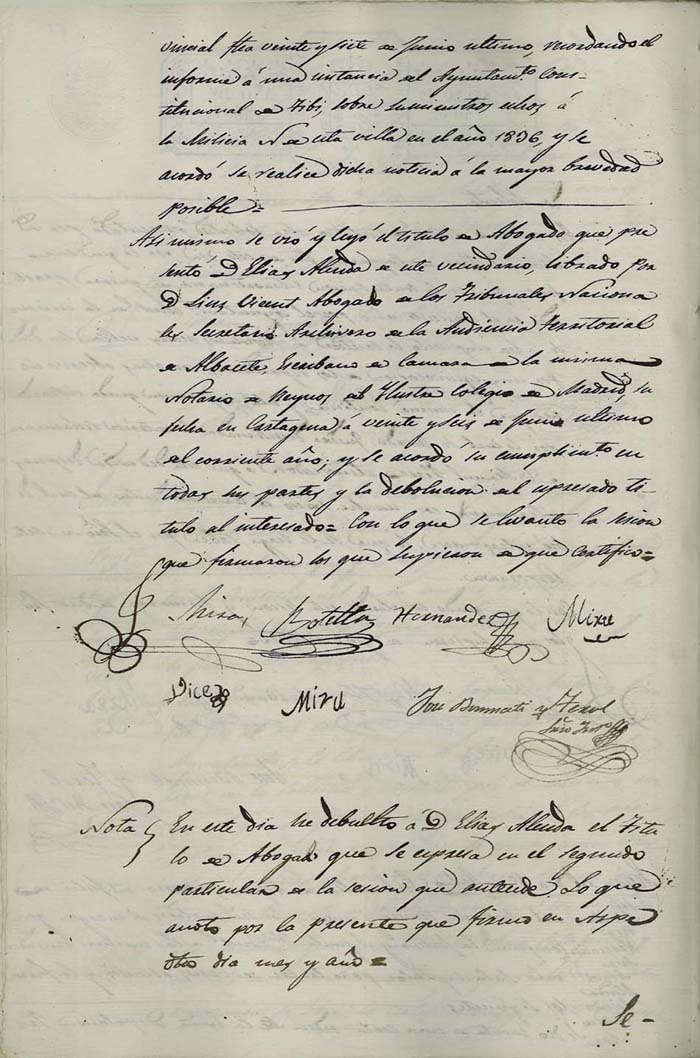 vincial fha veinte y siete de Junio ultimo, recordando el
informe á una instancia del Ayuntamto. Cons-
titucional de Tibi, sobre suministros echos á
la Milicia N de esta villa en el año 1836, y se
acordó se realice dicha noticia á la mayor brevedad
posible=
Asi mismo se vió y leyó el titulo de Abogado que pre
sentó D Elias Alenda de este vecindario, librado por
D Luis Vicent Abogado de los Tribunales Naciona
les Secretario Archivero de la Audiencia Territorial
de Albacete, Escribano de Camara de la misma
Notario de Reynos del Ilustre Colegio de Madrid, su
fecha en Cartagena á veinte y seis de Junio ultimo
del corriente año; y se acordó su cumplimto. en
todas sus partes y la debolucion del espresado ti-
tulo al interesado= Con lo que se levanto la sesion
que firmaron los que supieron de que certifico=
Mira Botella Hernandez Mira
Dicez Mira José Bonmati y Terol
Srio.
Nota En este dia he debuelto á D Elias Alenda el Titu
lo de Abogado que se espresa en el segundo
particular de la sesion que antecede. Lo que
anoto por la presente que firmo en Aspe
dho dia mes y año=
Se-